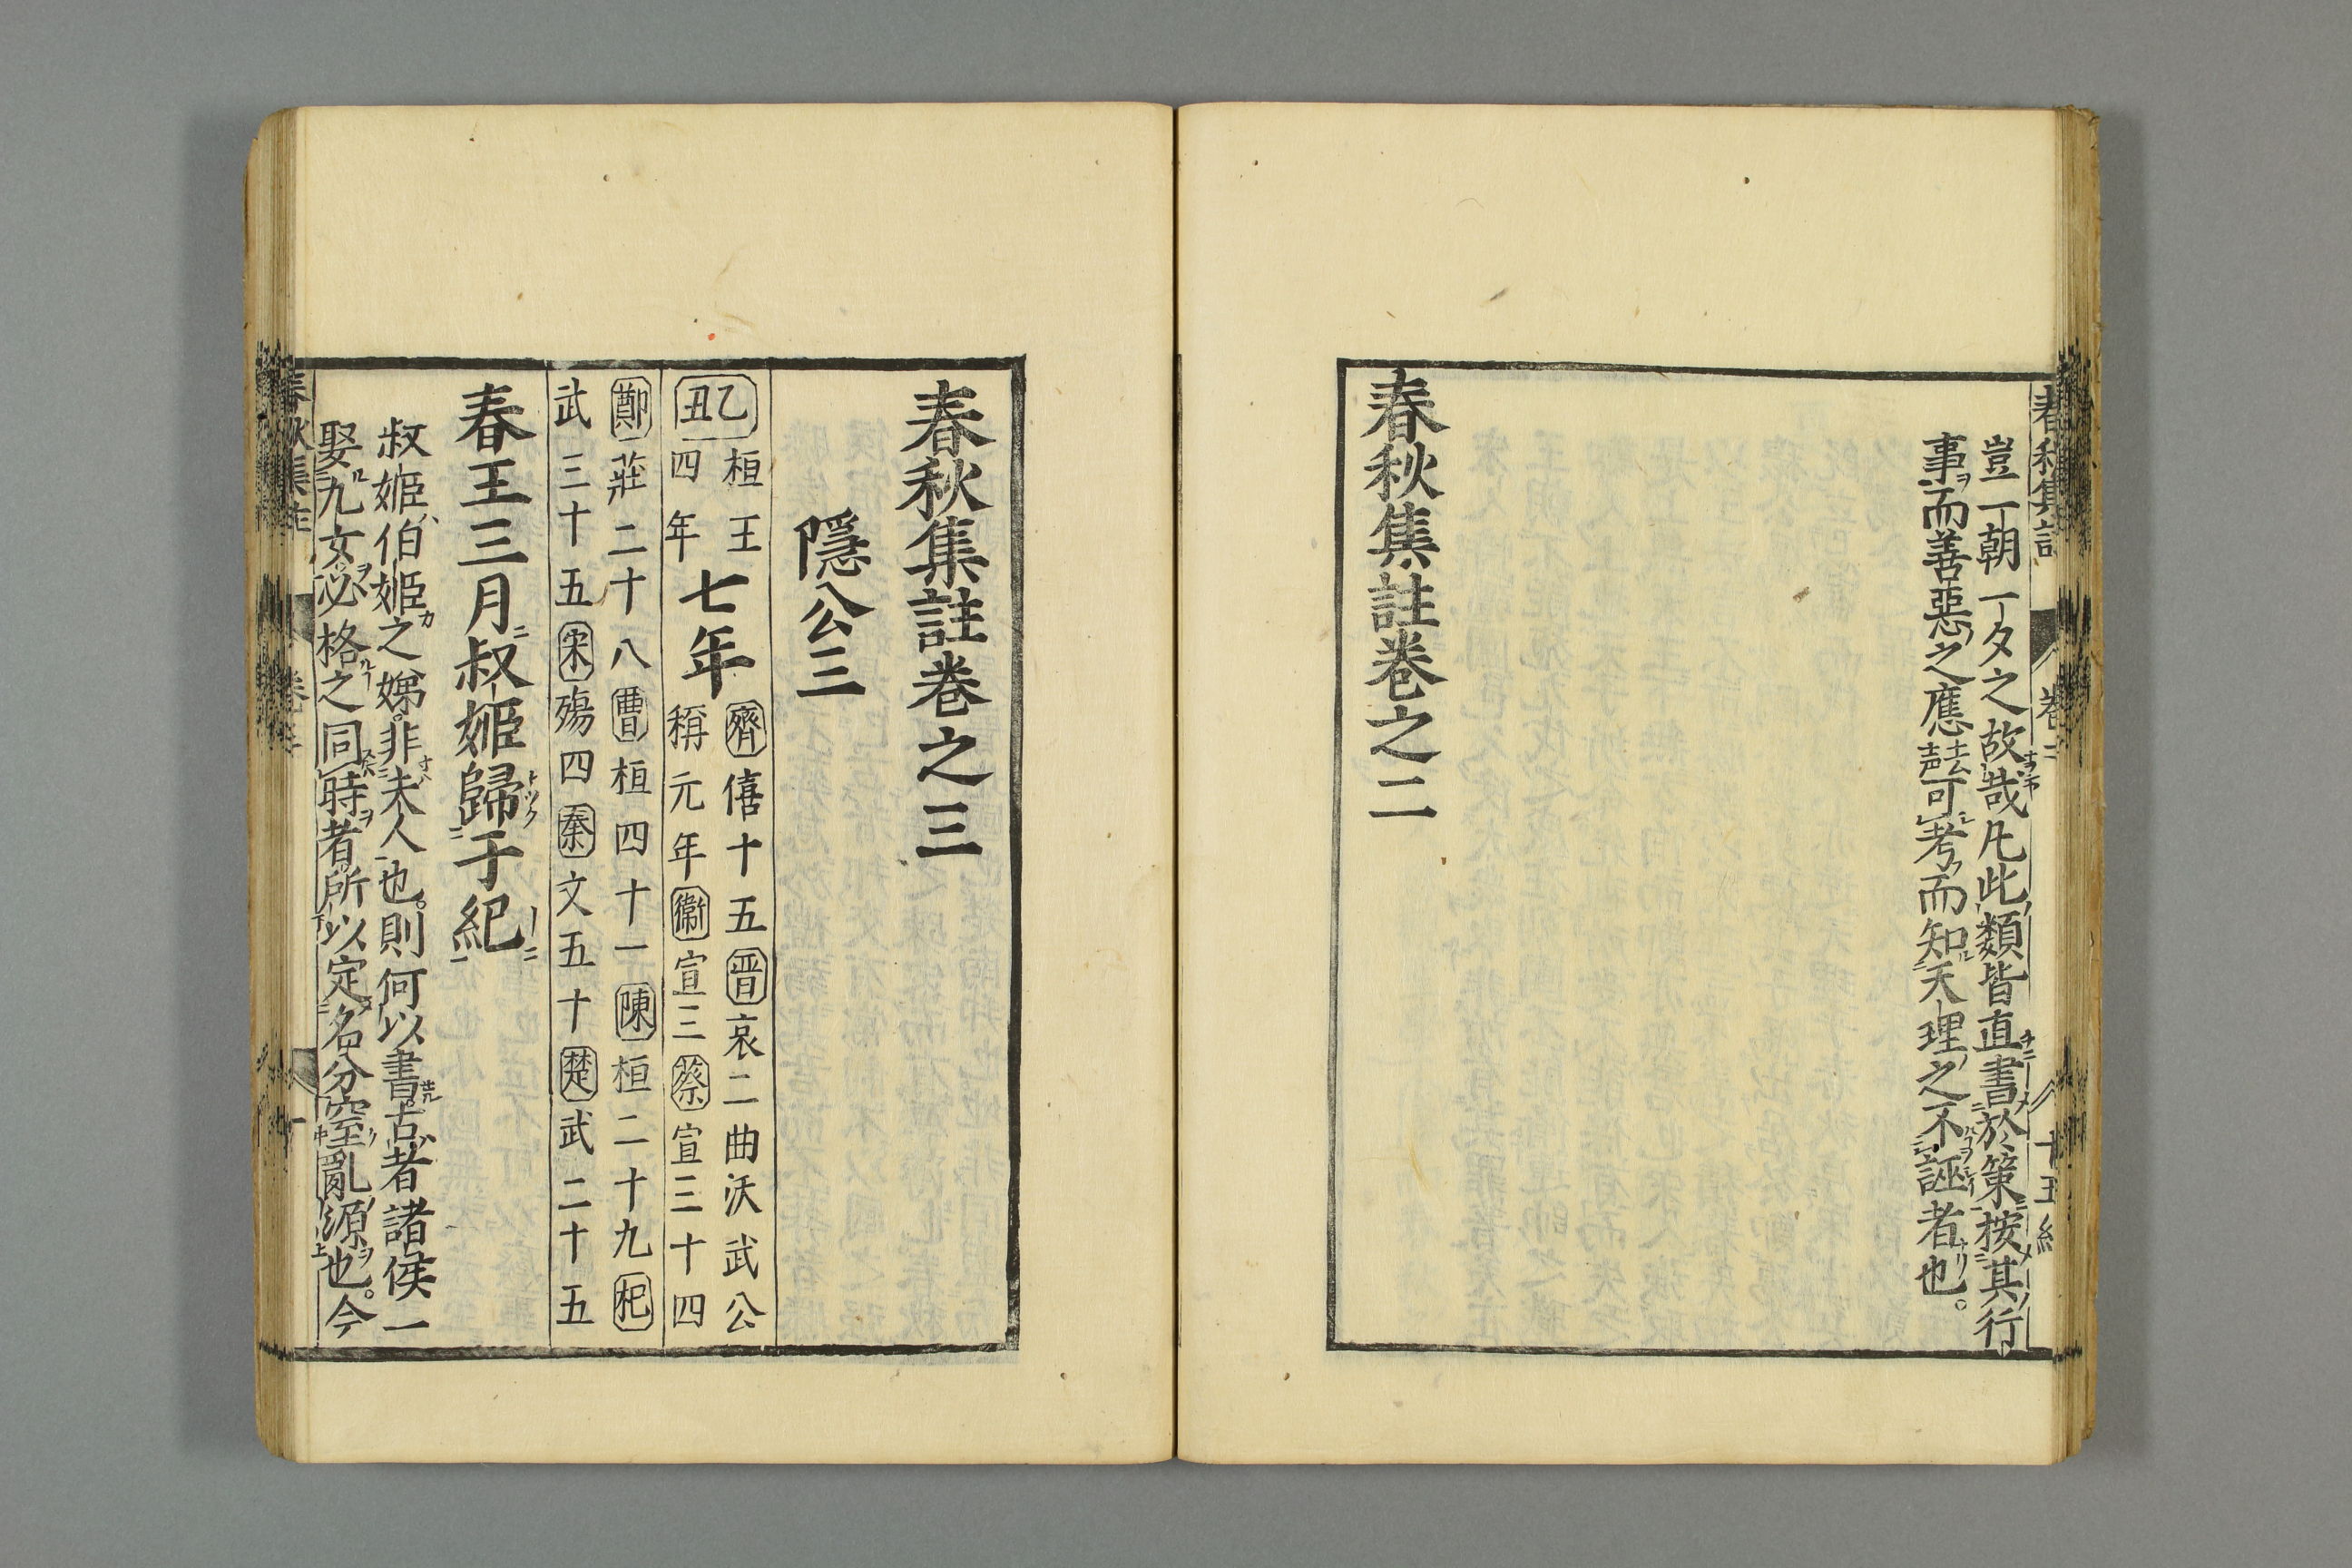 豈一朝一夕之故哉凡此類皆直書於策按其行
事而善惡之應可考而知天理之不誣者也。
春秋集註卷之二
春秋集註卷之三
隱公三
乙丑 桓王四年 七年 齊僖十五晉哀二曲沃武公
稱元年衞宣三蔡宣三十四
鄭莊二十八曹桓四十一陳桓二十九杞
武三十五宋殤四秦文五十楚武二十五
春王三月叔姬歸于紀
叔姬伯姬之娣。非夫人也。則何以書。古者諸侯一
娶九女必格之同時者所以定名分窒亂源也。今